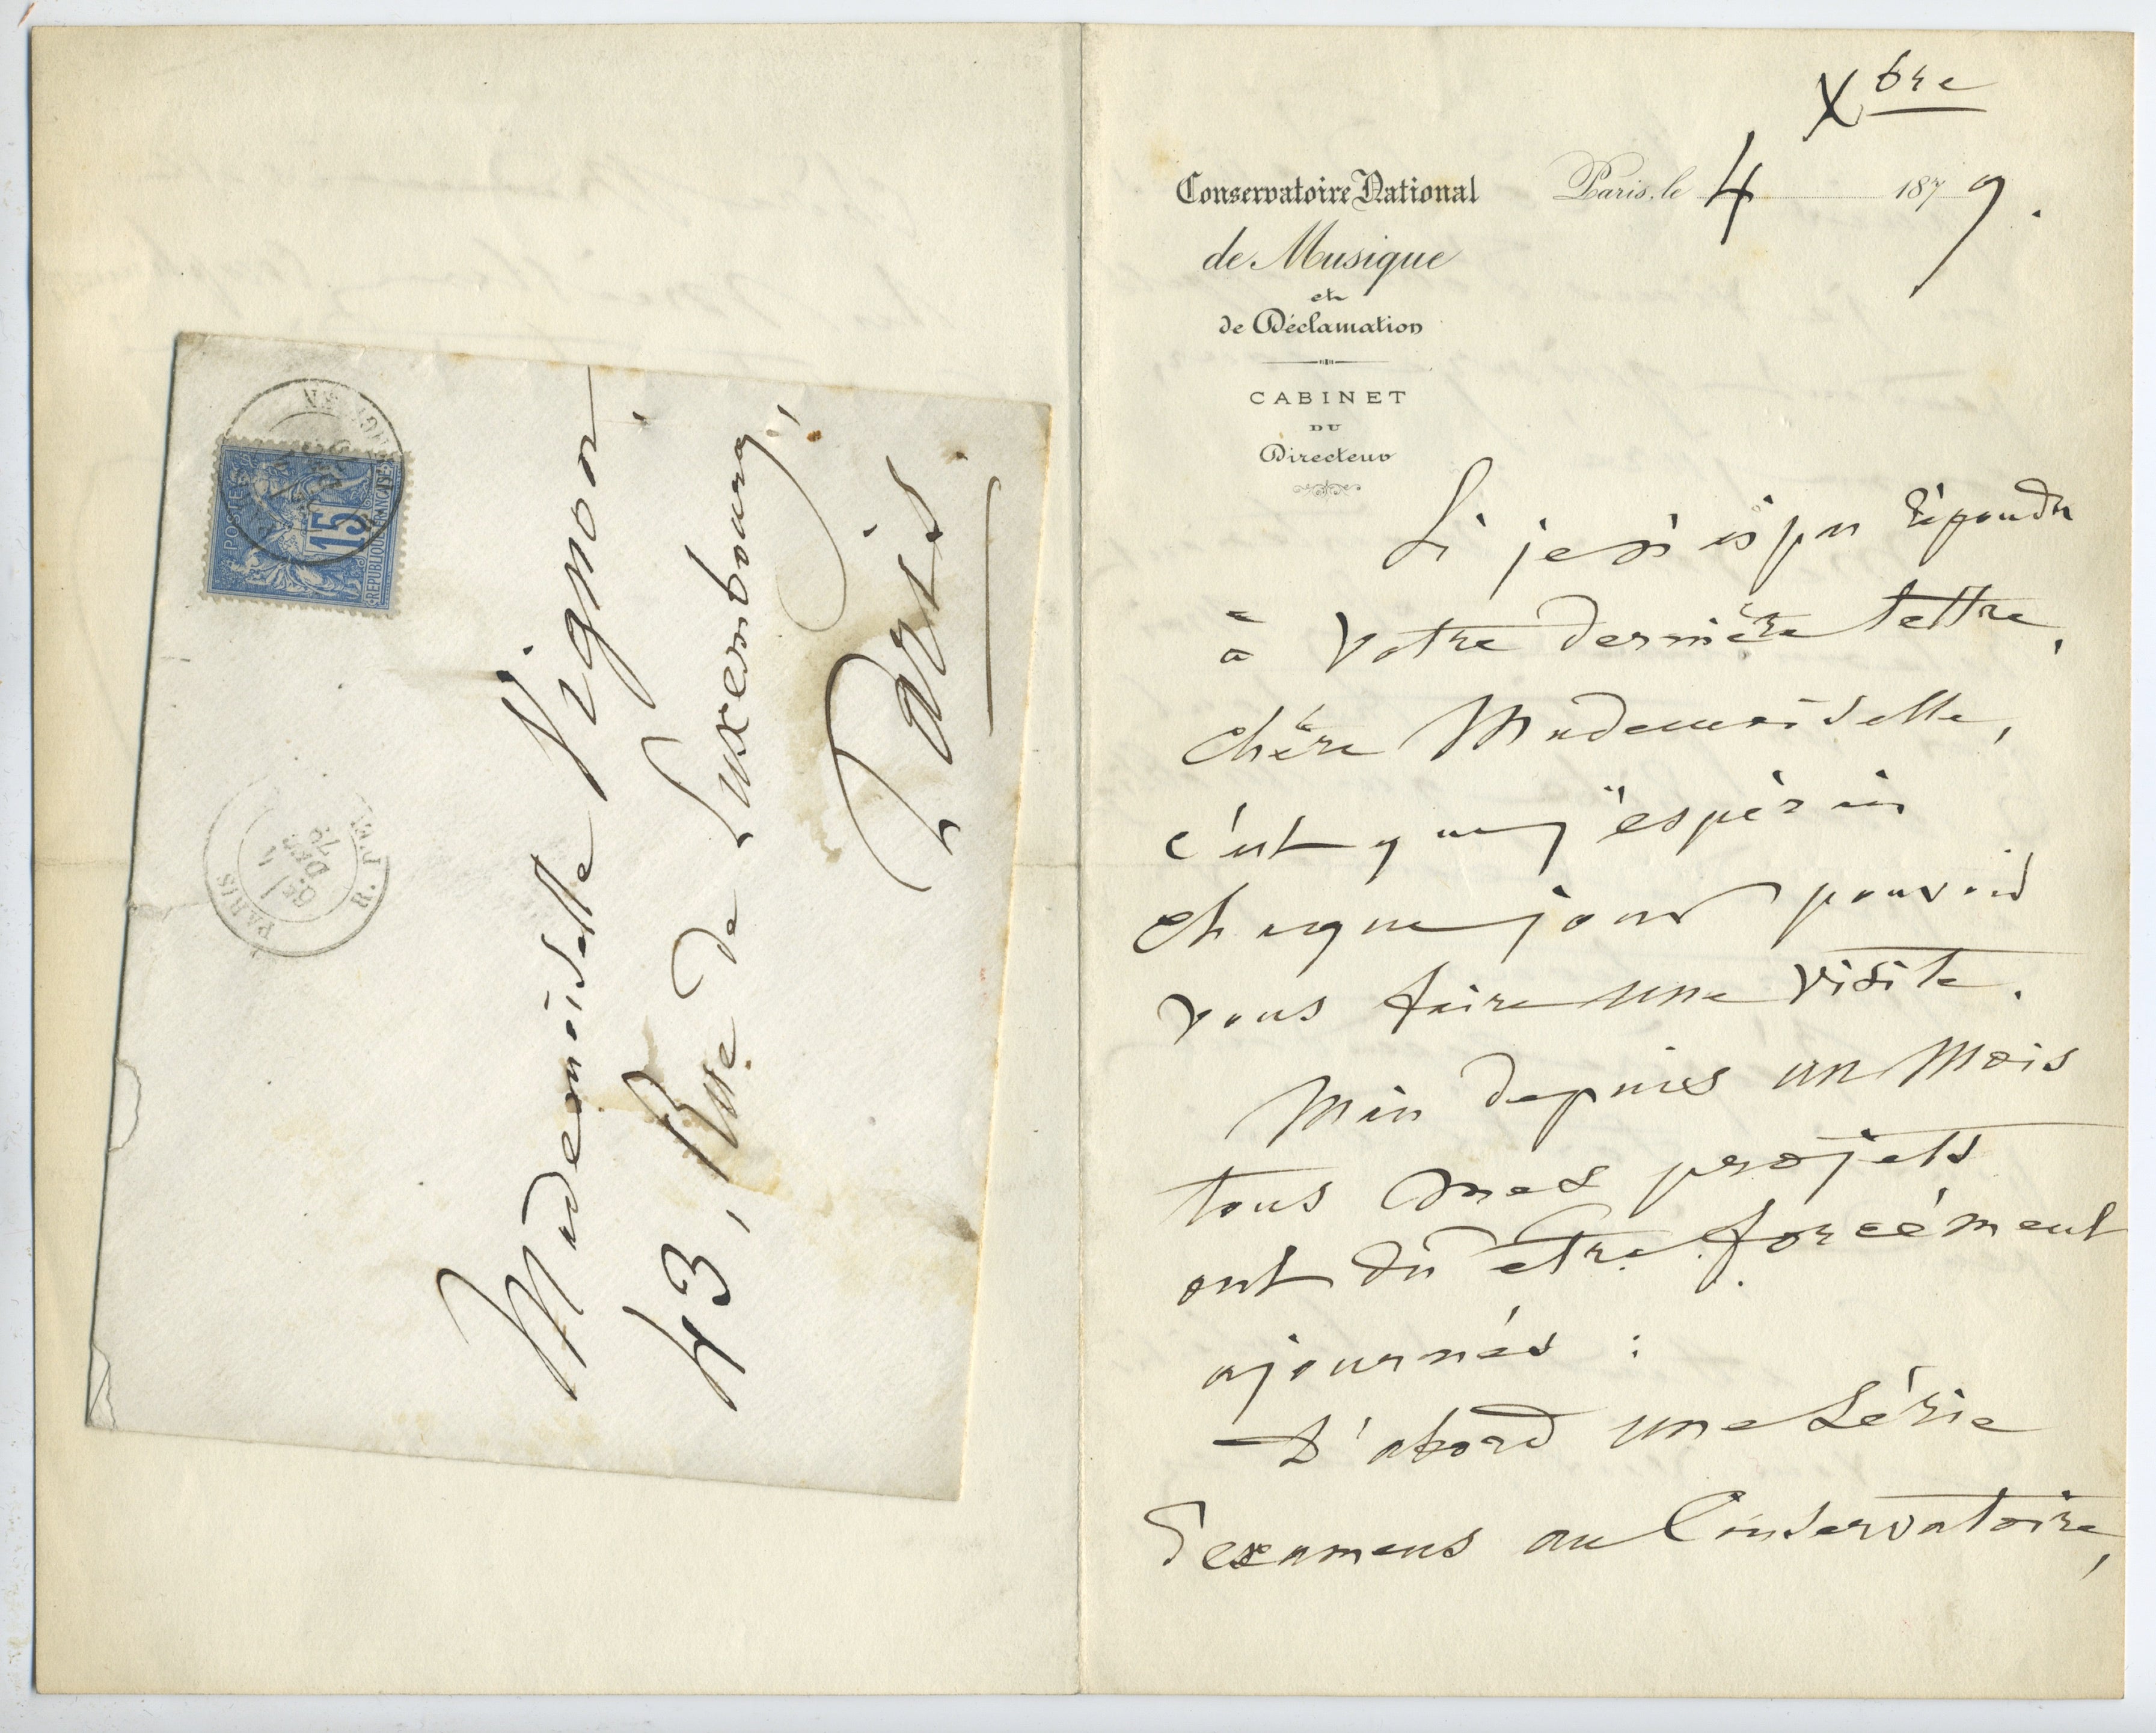 Mademoiselle Vignon
43, Rue de Luxembourg,
Paris
POSTES
15
REPUBLIQUE FRANÇAISE
PARIS
6E/ 4
DEC
79
R. P.
Xbre
Conservatoire National
de Musique
et
de Déclamation
CABINET
DU
Directeur
Paris, le 4 1879.
Si je n'ai pas répondu
à votre dernière lettre,
chère Mademoiselle,
c'est que j'espérais
chaque jour pouvoir
vous faire une visite.
Mais depuis un mois
tous mes projets
ont dû être forcément
ajournés :
D'abord une série
d'examens au Conservatoire,